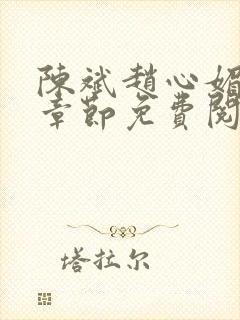 陳斌趙心媚
章節免費閱
塔拉尔